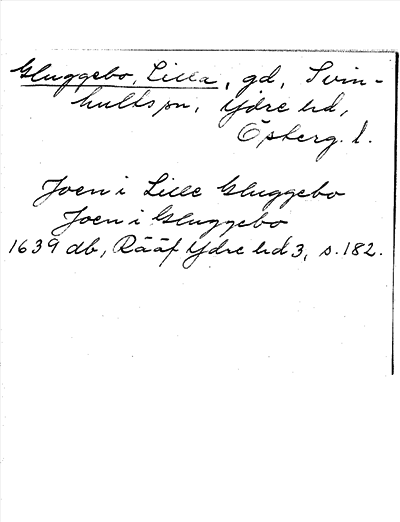 Gluggebo, Lilla, gd, Svin-
hults sn, Ydre hd,
Östergl.
Joen i Lille Gluggebo
Joen i Gluggebo
1639 db, Rääf Ydre hd 3, s. 182.